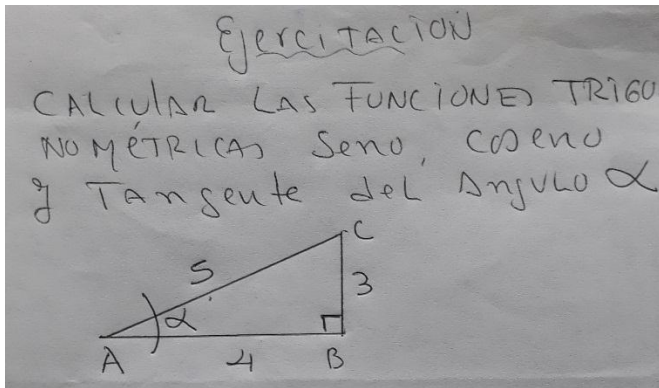 Ejercitacion
CALCULAR LAS FUNCIONES TRIGO
NOMÉTRICAS Seno, coseno
y Tangente del Angulo α
C
5
3
α
A
4
B